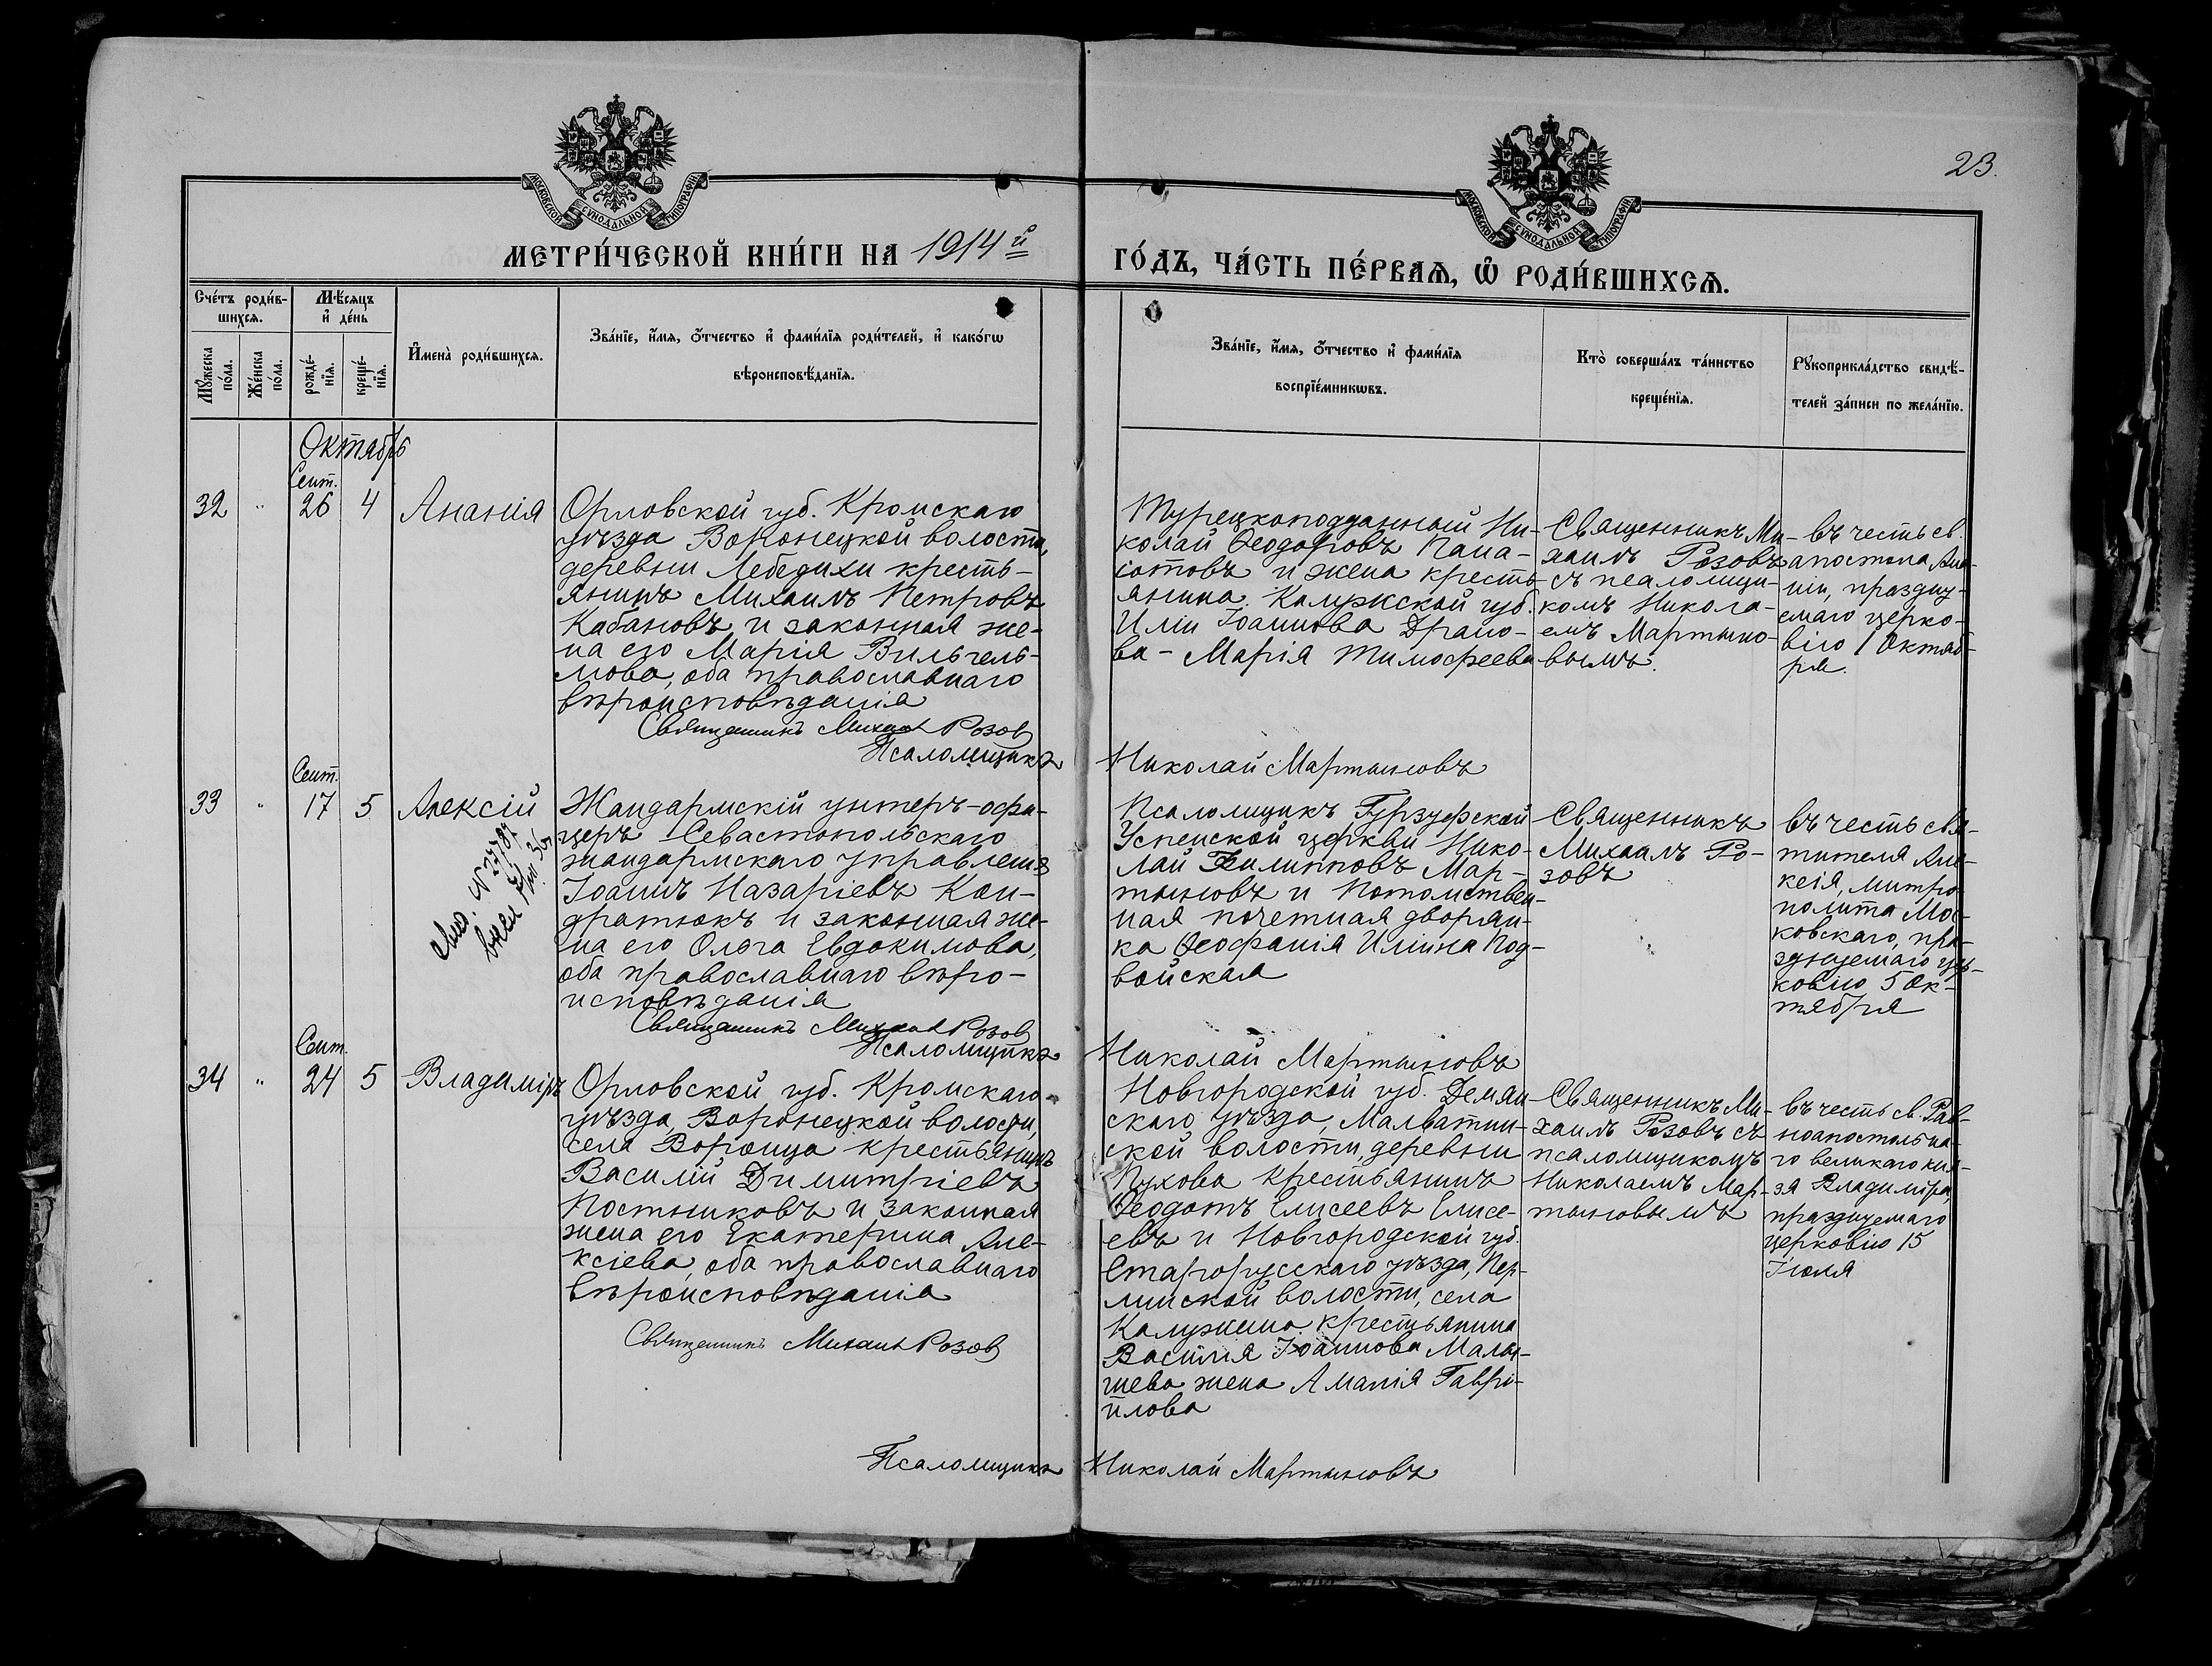 23.
МОСКОВСКОЙ СѴНОДАЛЬНОЙ ТИПОГРАФІИ
МОСКОВСКОЙ СѴНОДАЛЬНОЙ ТИПОГРАФІИ
МЕТРИ́ЧЕСКОЙ КНИ́ГИ НА 1914й
ГО́ДЪ, ЧА́СТЬ ПЕ́РВАѦ, Ѽ РОДИ́ВШИХСѦ.
Сче́тъ роди́в-
шихсѧ.
Мꙋ́жеска по́ла.
Же́нска по́ла.
Мѣ́сѧцъ
и҆ де́нь
рожде́-
нїѧ.
креще́-
нїѧ.
И҆мена̀ роди́вшихсѧ.
Зва́нїе, и҆́мѧ, ѻ҆́тчество и҆ фами́лїѧ роди́телей, и҆ како́гѡ
вѣроисповѣ́данїѧ.
Зва́нїе, и҆́мѧ, ѻ҆́тчество и҆ фами́лїѧ
воспрїе́мникѡвъ.
Кто̀ соверша́лъ та́инство
креще́нїѧ.
Рꙋкоприкла́дство свидѣ́-
телей за́писи по жела́нїю.
Октябрь
Сент.
32 " 26 4 Ананія
Орловской губ. Кромскаго
уѣзда Воронецкой волости,
деревни Лебедихи кресть-
янинъ Михаилъ Петровъ
Кабановъ и законная же-
на его Марія Вильгель-
мова, оба православнаго
вѣроисповѣданія
Священникъ Михаил Розов
Псаломщикъ
Турецкоподданный Ни-
колай Ѳеодоровъ Пана-
іотовъ и жена кресть-
янина Калужской губ.
Иліи Іоаннова Драно-
ва - Марія Тимофеева
Священникъ Ми-
хаилъ Розовъ
съ псаломщи-
комъ Никола-
емъ Мартыно-
вымъ.
въ честь св.
апостола Ана-
ніи, праздну-
емаго церко-
вію 1 Октяб-
ря.
Николай Мартыновъ
Сент.
33 " 17 5 Алексій
Жандармскій унтеръ-офи-
церъ Севастопольскаго
жандармскаго управленія
Іоаннъ Назаріевъ Кон-
дратюкъ и законная же-
на его Олга Евдокимова,
оба православнаго вѣро-
исповѣданія
Священникъ Михаил Розов
Псаломщикъ
Псаломщикъ Гурзуфской
Успенской церкви Нико-
лай Филипповъ Мар-
тыновъ и Потомствен-
ная почетная дворян-
ка Ѳеофанія Иліина Под-
войская
Священникъ
Михаилъ Ро-
зовъ
въ честь свя-
тителя Але-
ксія, митро-
полита Мос-
ковскаго, пра-
зднуемаго цер-
ковію 5 Ок-
тября
Николай Мартыновъ
Сент.
34 " 24 5 Владиміръ
Орловской губ. Кромскаго
уѣзда, Воронецкой волости,
села Воронца крестьянинъ
Василій Димитріевъ
Постниковъ и законная
жена его Екатерина Але-
ксіева, оба православнаго
вѣроисповѣданія
Священникъ Михаил Розов
Псаломщикъ
Новгородской губ. Демян-
скаго уѣзда, Малватин-
ской волости, деревни
Пухова крестьянинъ
Ѳеодотъ Елисеевъ Елисе-
евъ и Новгородской губ.
Старорусскаго уѣзда, Пер-
линской волости, села
Калужина крестьянина
Василія Іоаннова Малы-
шева жена Аманія Гаврі-
илова
Священникъ Ми-
хаилъ Розовъ съ
псаломщикомъ
Николаемъ Мар-
тыновымъ
въ честь св. Рав-
ноапостольна-
го великаго кня-
зя Владиміра
празднуемаго
церковію 15
Іюля
Николай Мартыновъ